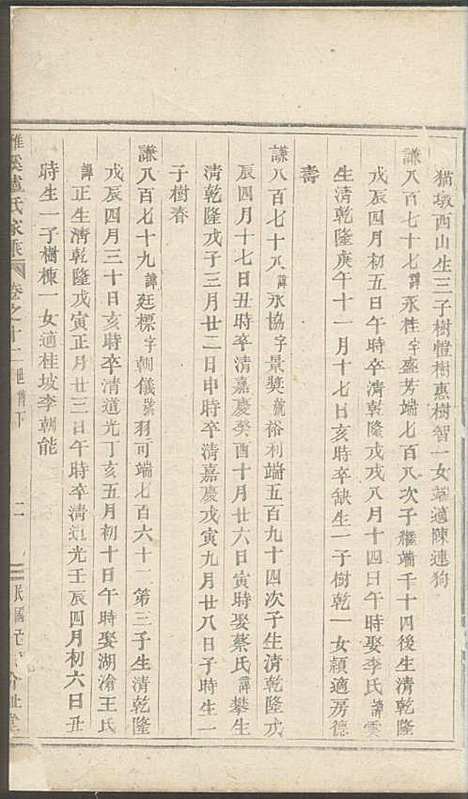 猫墩西山生三子樹樹惠樹智一女適陳連狗
謙八百七十七諱永桂字盛芳端七百八次子繼端千十四後生清乾隆
戊辰四月初五日午時卒乾隆戊戌八月十四日午時娶李氏諱雲
生清乾隆庚午十一月十七日亥時卒缺生一子樹乾一女頴適房德
壽
謙八百七十八諱永協字景奘號裕利端五百九十四次子生清乾隆戊
辰四月十七日丑時卒清嘉慶癸酉十月廿六日寅時娶蔡氏諱攀生
清乾隆戊子三月廿二日申時卒清嘉慶戊寅九月廿八日子時生一
子樹春
謙八百七十九諱廷標字朝儀號羽可端七百六十一第三子生清乾隆
戊辰四月三十日亥時卒清道光丁亥五月初十日午時娶湖滄王氏
諱正生清乾隆戊寅正月廿三日午時卒清道光壬辰四月初六日丑
時生一子樹棟一女適桂坡李朝能
雅溪盧氏家乘 卷之十二 下 二